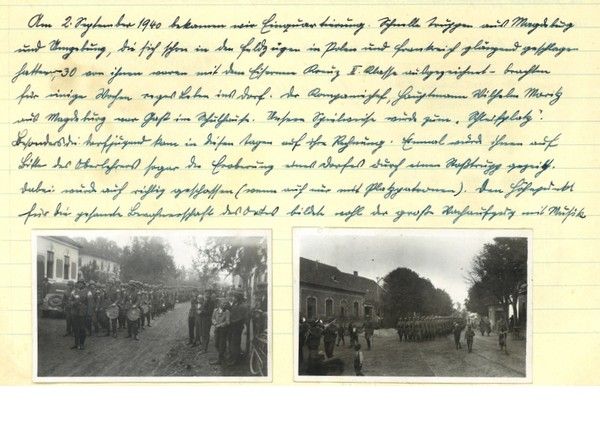 Am 2. September 1940 bekamen wir Einquartierung. Schnelle Truppen aus Magdeburg
und Umgebung, die sich schon in den Feldzügen in Polen und Frankreich glänzend geschlagen
hatten - 30 von ihnen waren mit dem Eisernen Kreuz II. Klasse ausgezeichnet - brachten
für einige Wochen reges Leben ins Dorf. Der Kompaniechef, Hauptmann Wilhelm
aus Magdeburg war Gast im Schulhause. Unsere Spielwiese wurde zum "Schleifplatz".
Besonders die Dorfjugend kam in diesen Tagen auf ihre Rechnung. Einmal wurde ihnen auf
Bitte des Oberlehrers sogar die Eroberung eines Dorfes durch einen Stoßtrupp gezeigt.
Dabei wurde auch richtig geschossen (wenn auch nur mit Platzpatronen). Den Höhepunkt
für die gesamte Einwohnerschaft des Ortes bildete wohl der große Vorbeimarsch mit Musik.